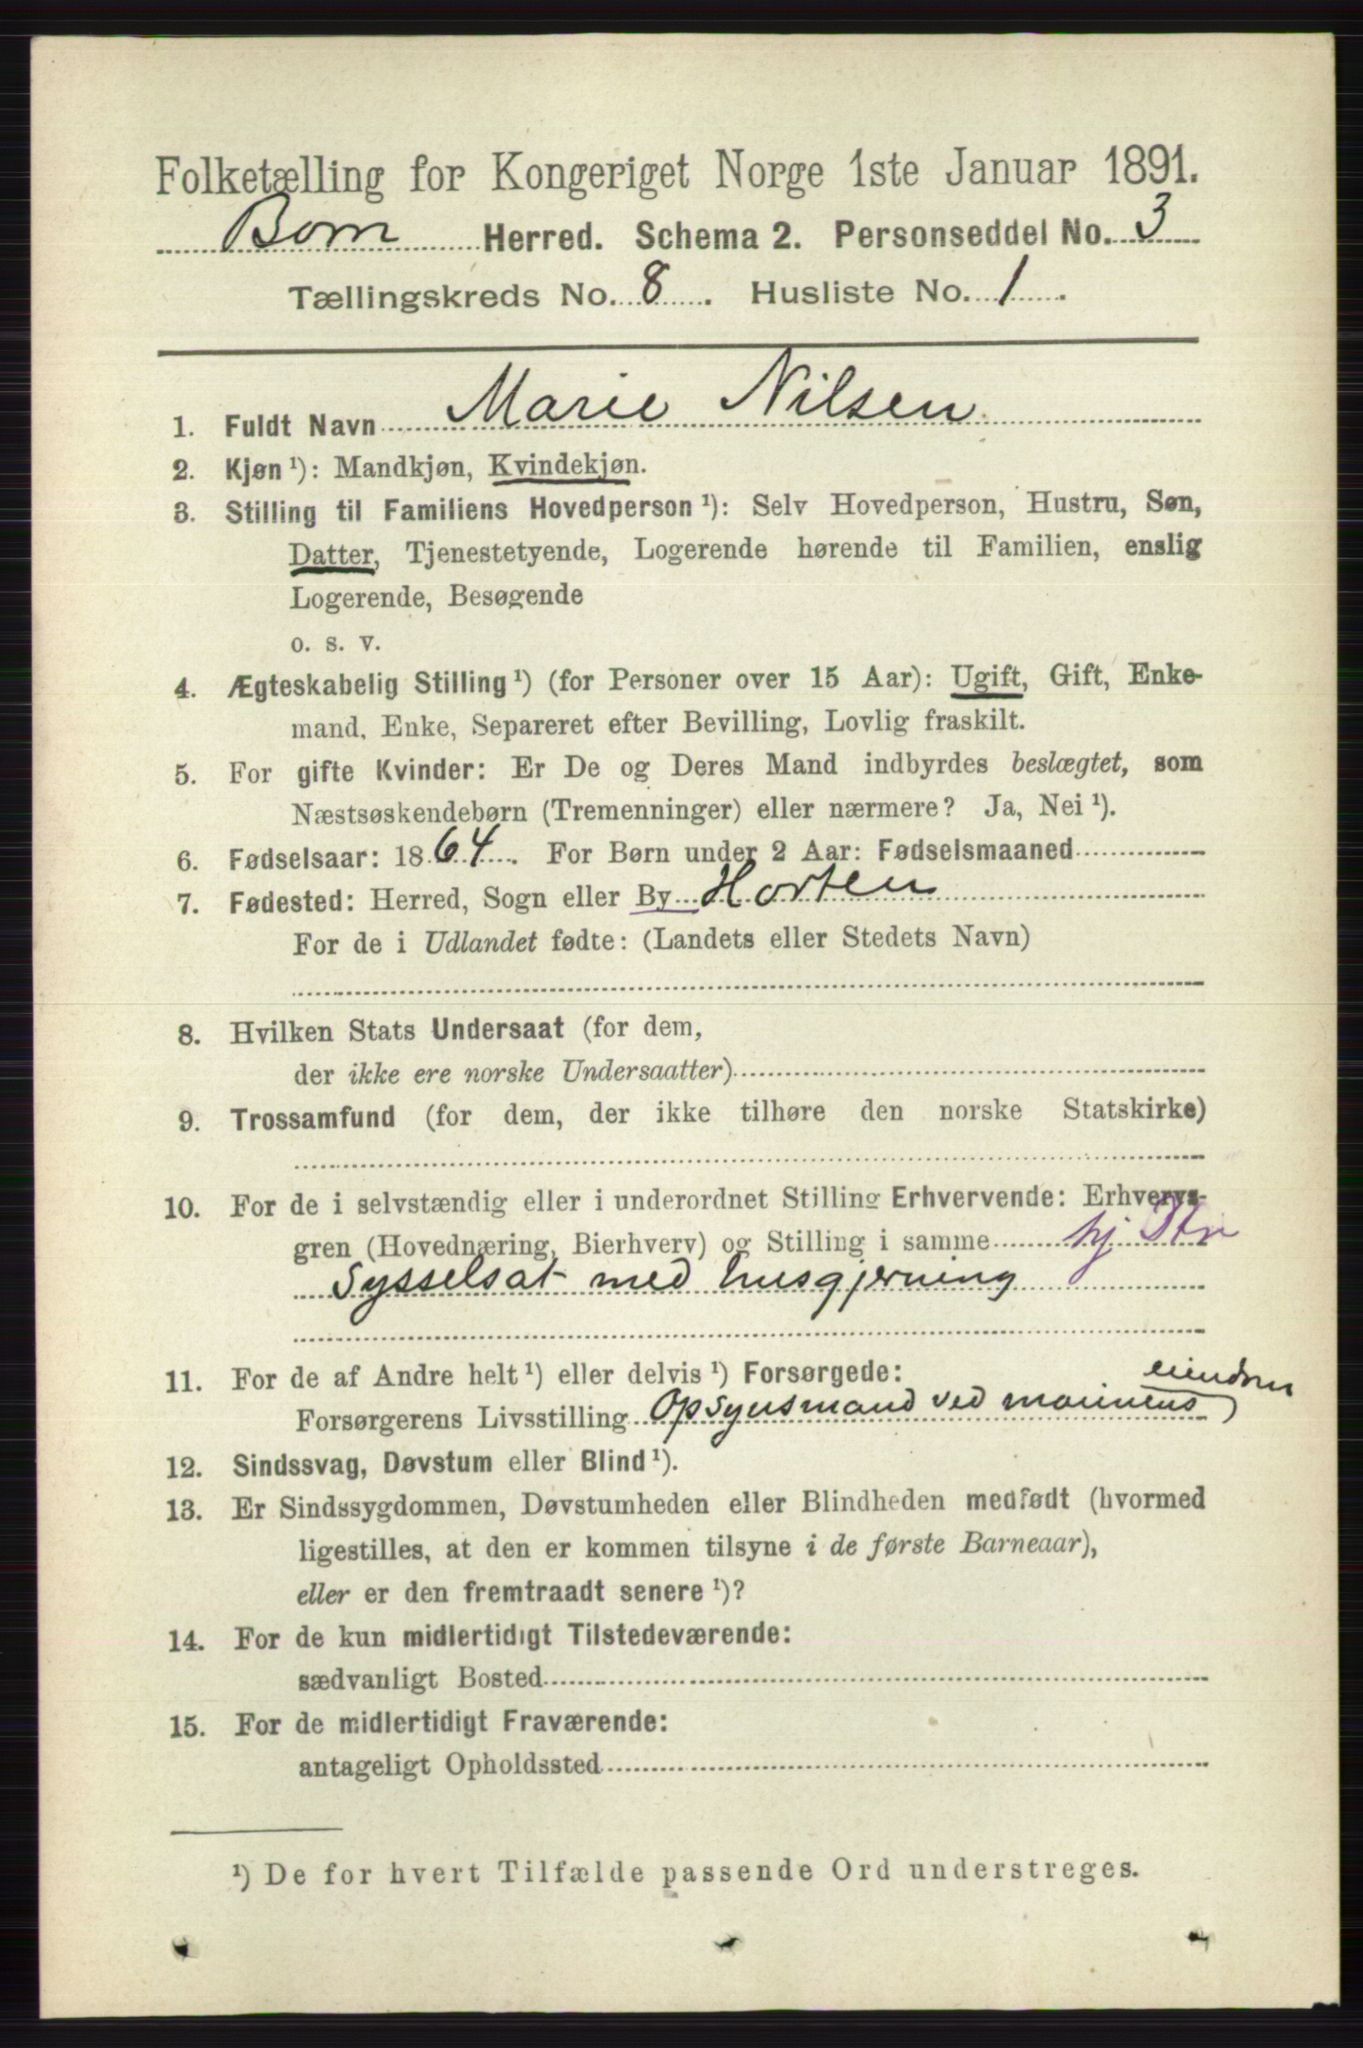 Folketælling for Kongeriget Norge 1ste Januar 1891.
Borre Herred. Schema 2. Personseddel No. 3
Tællingskreds No. 8. Husliste No. 1.
1. Fuldt Navn Marie Nilsen
2. Kjøn ¹): Mandkjøn, Kvindekjøn.
3. Stilling til Familiens Hovedperson ¹): Selv Hovedperson, Hustru, Søn,
Datter, Tjenestetyende, Logerende hørende til Familien, enslig
Logerende, Besøgende
o. s. v.
4. Ægteskabelig Stilling ¹) (for Personer over 15 Aar): Ugift, Gift, Enke-
mand, Enke, Separeret efter Bevilling, Lovlig fraskilt.
5. For gifte Kvinder: Er De og Deres Mand indbyrdes beslægtet, som
Næstsøskendebørn (Tremenninger) eller nærmere? Ja, Nei ¹).
6. Fødselsaar: 1864. For Børn under 2 Aar: Fødselsmaaned
7. Fødested: Herred, Sogn eller By Horten
For de i Udlandet fødte: (Landets eller Stedets Navn)
8. Hvilken Stats Undersaat (for dem,
der ikke ere norske Undersaatter)
9. Trossamfund (for dem, der ikke tilhøre den norske Statskirke)
10. For de i selvstændig eller i underordnet Stilling Erhvervende: Erhvervs-
gren (Hovednæring, Bierhverv) og Stilling i samme hj.
Sysselsat med husgjerning
11. For de af Andre helt ¹) eller delvis ¹) Forsørgede:
eiendom
Forsørgerens Livsstilling Opsynsmand ved marinens
12. Sindssvag, Døvstum eller Blind ¹).
13. Er Sindssygdommen, Døvstumheden eller Blindheden medfødt (hvormed
ligestilles, at den er kommen tilsyne i de første Barneaar),
eller er den fremtraadt senere ¹)?
14. For de kun midlertidigt Tilstedeværende:
sædvanligt Bosted
15. For de midlertidigt Fraværende:
antageligt Opholdssted
¹) De for hvert Tilfælde passende Ord understreges.